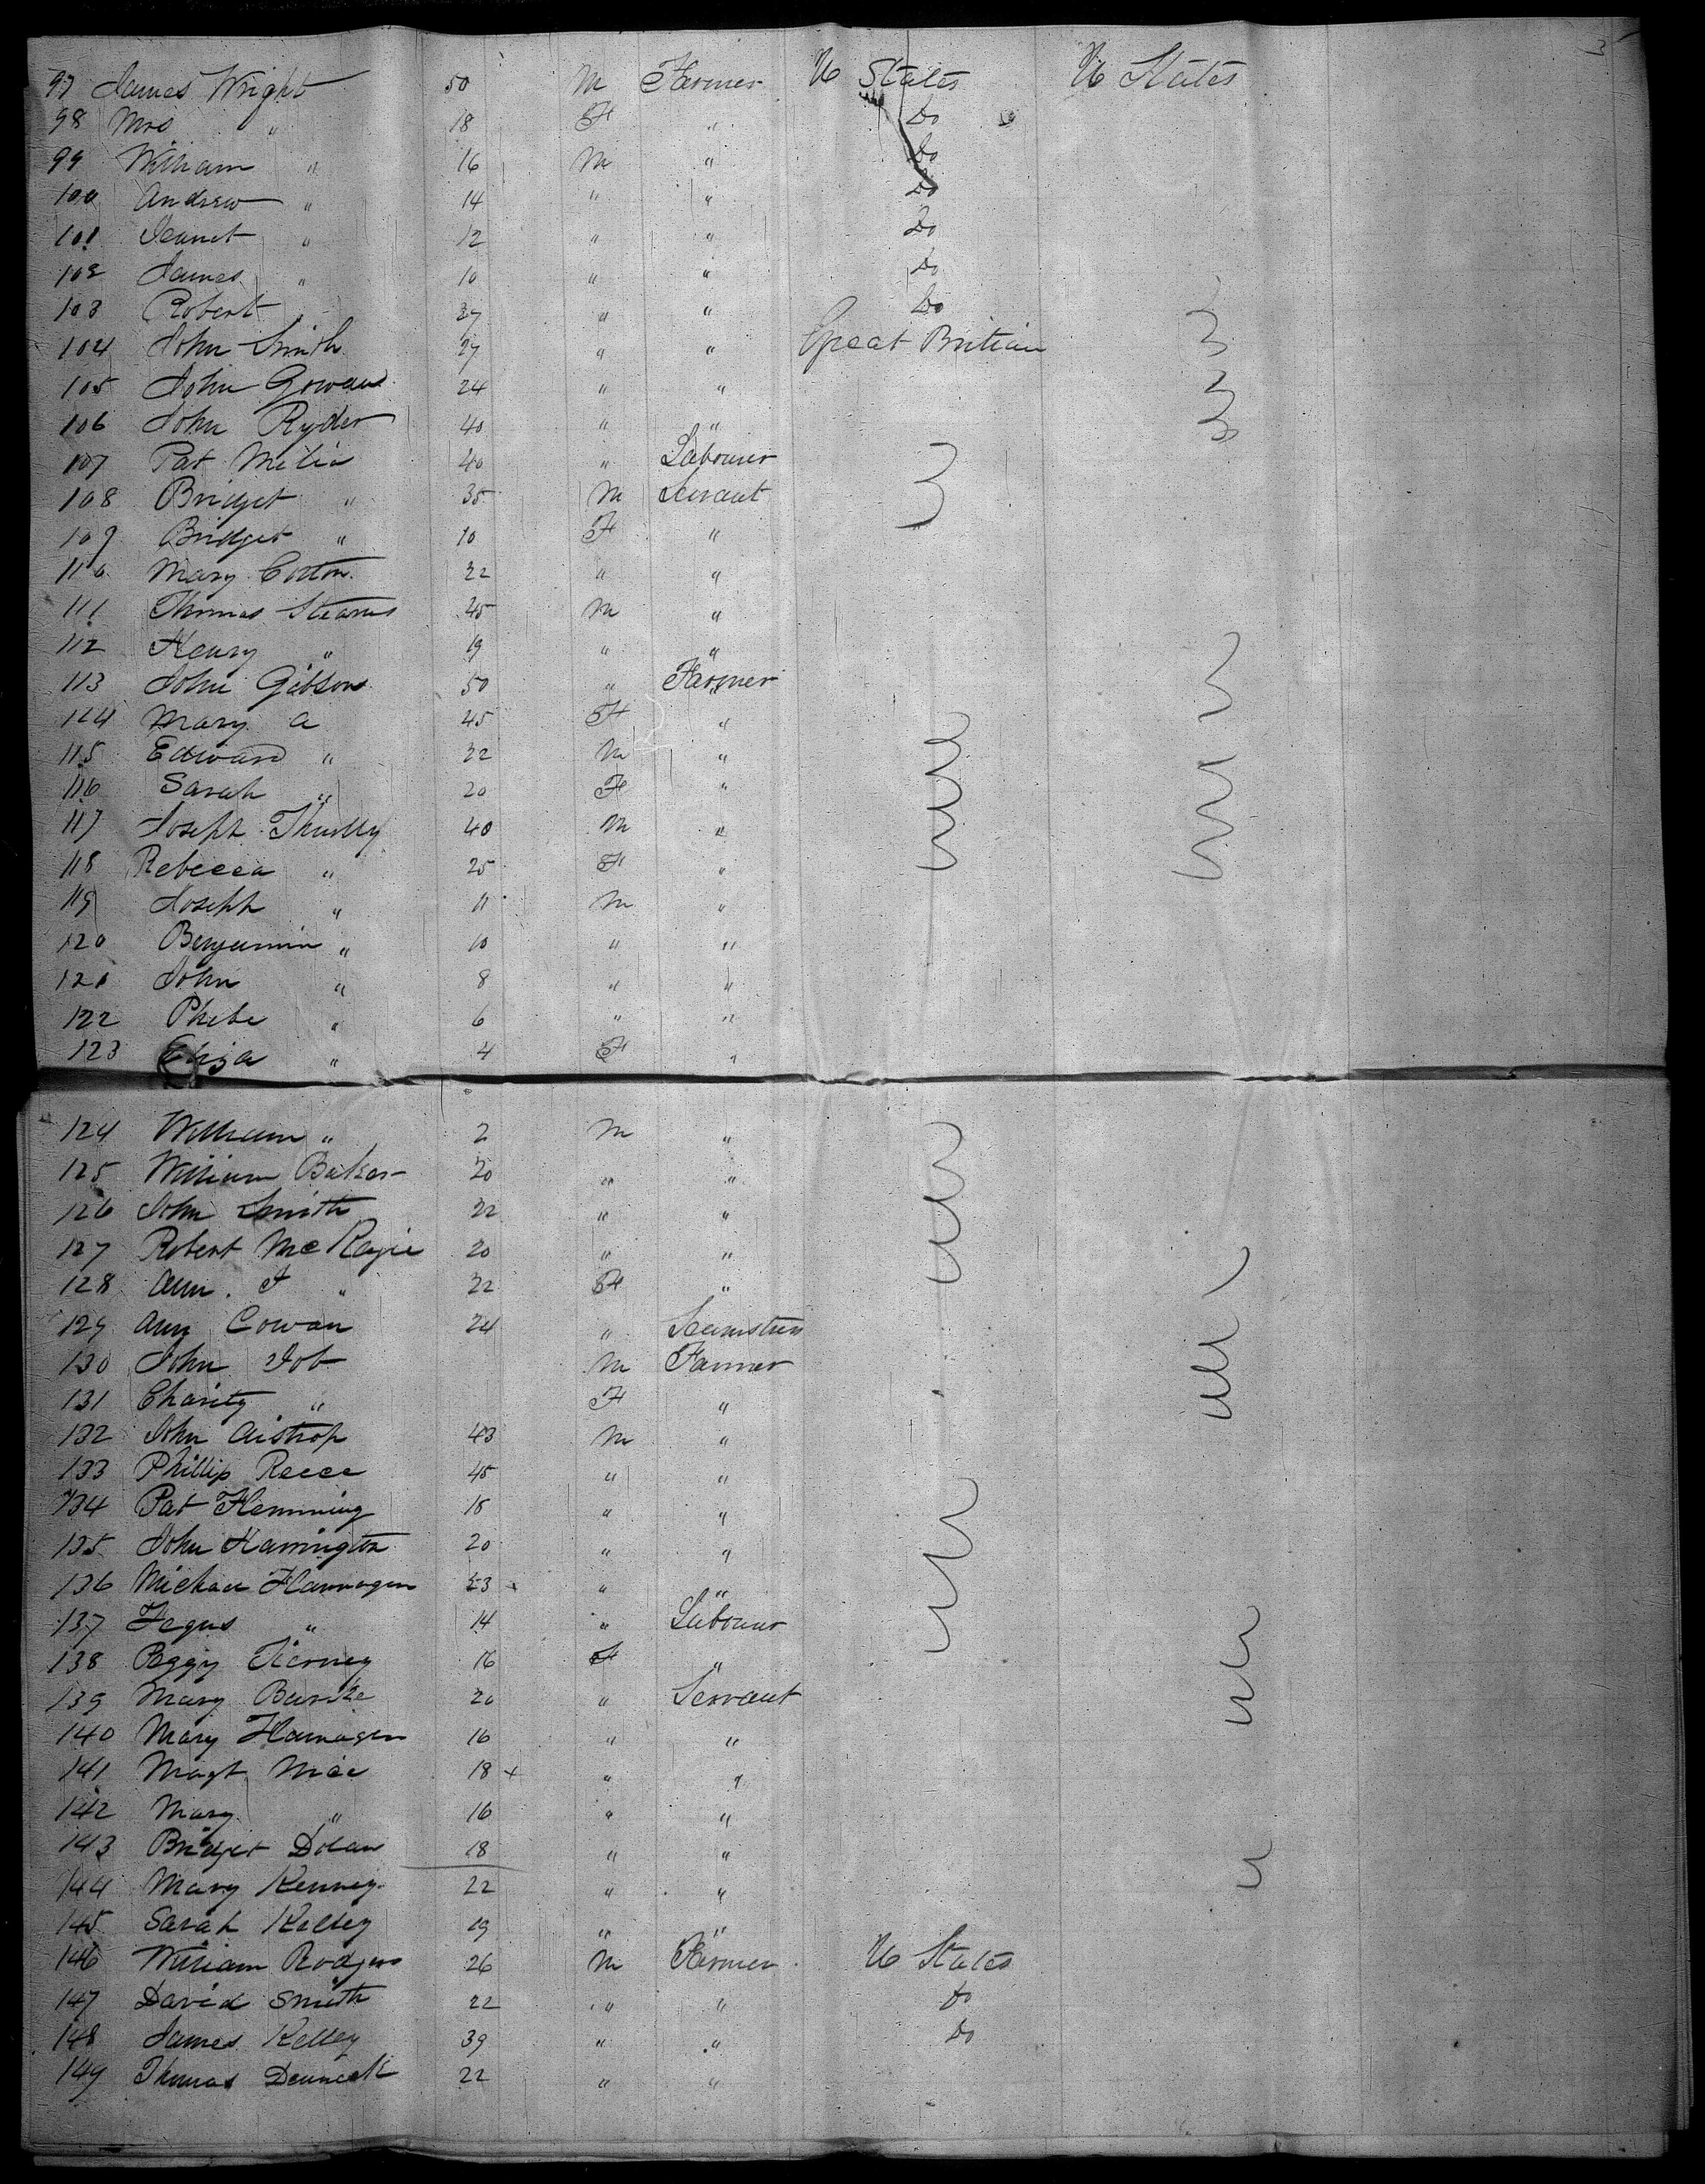 3
97 James Wright 50 M Farmer U States U States
98 Mrs " 18 F " Do
99 William " 16 M " Do
100 Andrew " 14 " " Do
101 Jeanet " 12 " " Do
102 James " 10 " " Do
103 Robert " 27 " " Do
104 John Smith 27 " " Great Britian
105 John Gowans 24 " "
106 John Ryder 40 " "
107 Pat Melia 40 " Labourer
108 Bridget " 35 M Servant
109 Bridget " 10 F "
110 Mary Cotton 22 " "
111 Thomas Stearns 45 M "
112 Henry " 19 " "
113 John Gibsons 50 " Farmer
114 Mary a 45 F "
115 Edward " 22 M "
116 Sarah " 20 F "
117 Joseph 40 M "
118 Rebecca " 25 F "
119 Joseph " 11 M "
120 Benjamin " 10 " "
121 John " 8 " "
122 Phebe " 6 " "
123 Eliza " 4 F "
124 William " 2 M "
125 William Baker 20 " "
126 John Smith 22 " "
127 Robert 20 " "
128 Ann " 22 F "
129 Ann Cowan 24 " Seamstress
130 John Job M Farmer
131 Charity " F "
132 John Aistrop 43 M "
133 Phillip Reece 45 " "
134 Pat Flemming 18 " "
135 John Harrington 20 " "
136 Michael Flannagen 23 x " "
137 Fegus " 14 " Labourer
138 Peggy Tierney 16 F "
139 Mary Burke 20 " Servant
140 Mary Flanagen 16 " "
141 Magt 18 x " "
142 Mary " 16 " "
143 Bridget Dolan 18 " "
144 Mary Kenney 22 " "
145 Sarah Kelley 19 " "
146 William Rodgers 26 M Farmer U States
147 David Smith 22 " " Do
148 James Kelley 39 " " Do
149 Thomas 22 " "